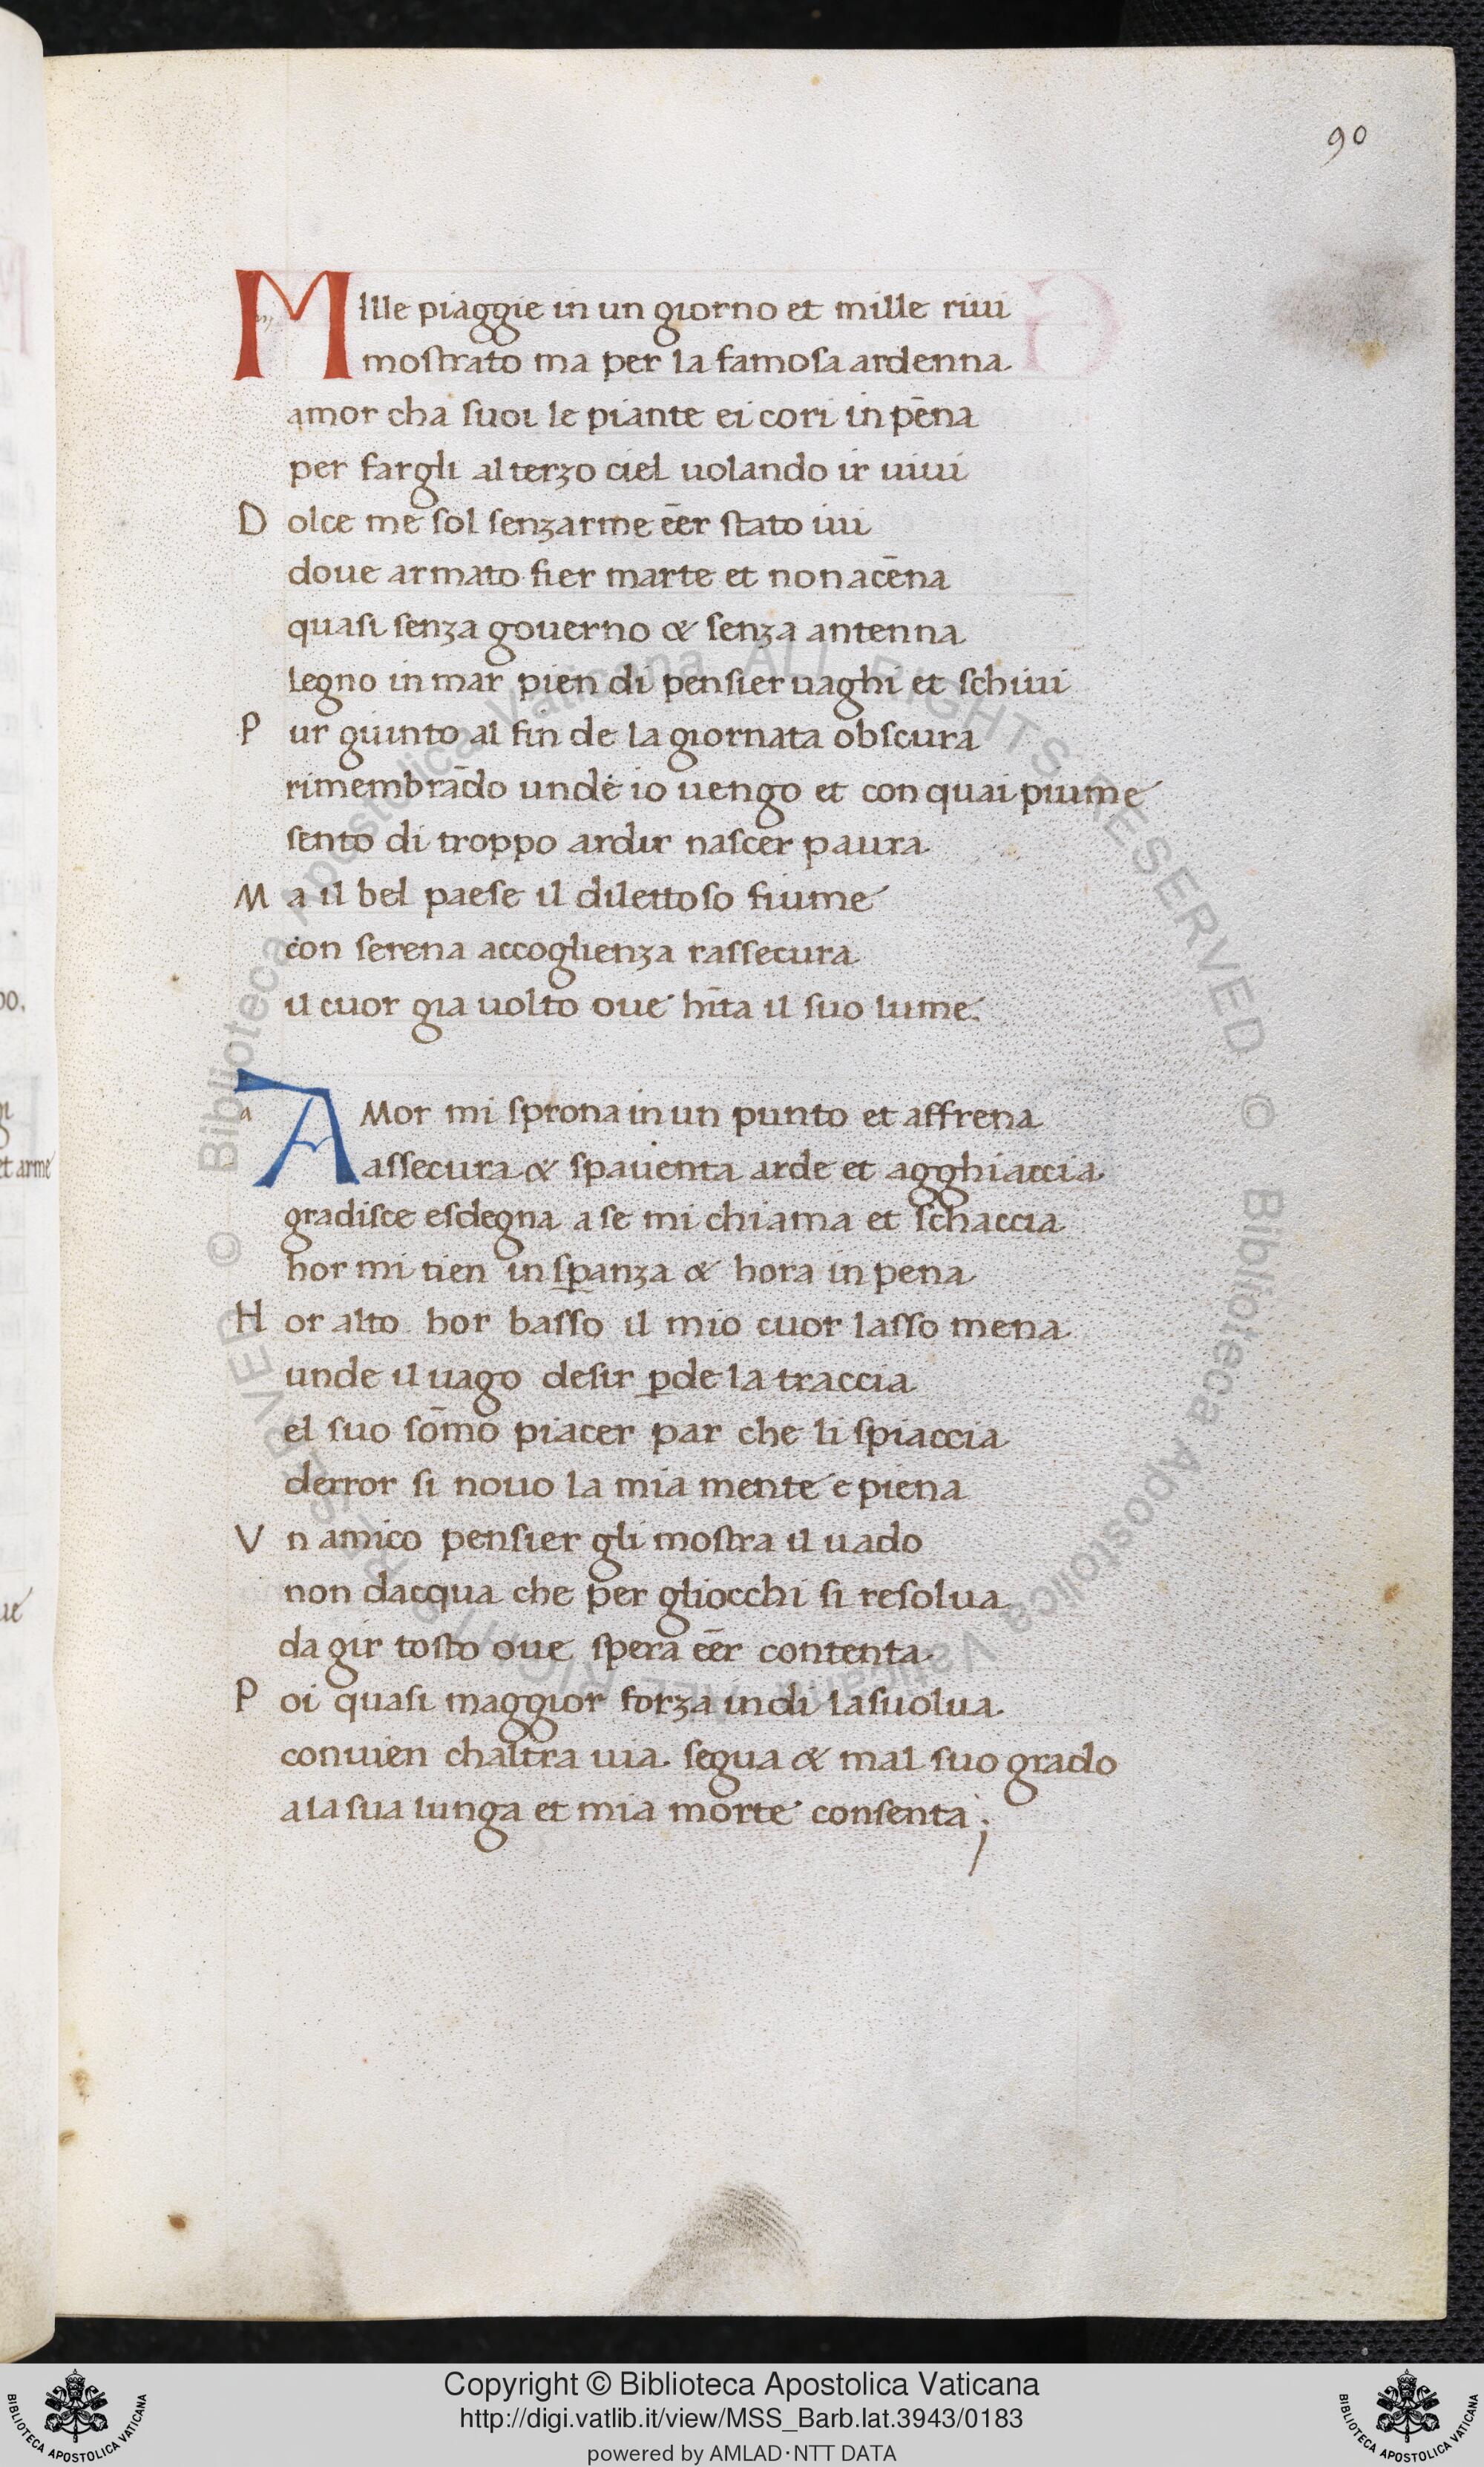 90
MIlle piaggie in un giorno et mille riui
mostrato ma per la famosa ardenna
amor cha suoi le piante ei cori inpēna
per fargli al terzo ciel uolando ir uiui
Dolce me sol senzarme eēr stato iui
doue armato fier marte et non acēna
quasi senza gouerno & senza antenna
legno in mar pien di pensier uaghi et schiui
Pur giunto al fin de la giornata obscura
rimembrādo unde io uengo et con quai piume
sento di troppo ardir nascer paura
Ma il bel paese il dilettoso fiume
con serena accoglienza rassecura
il cuor gia uolto oue hīta il suo lume.
a
AMor mi sprona in un punto et affrena
assecura & spauenta arde et agghiaccia
gradisce esdegna a se mi chiama et schaccia
hor mi tien in sꝑanza & hora in pena
Hor alto hor basso il mio cuor lasso mena
unde il uago desir ꝑde la traccia
el suo sōmo piacer par che li spiaccia
derror si nouo la mia mente e piena
Vn amico pensier gli mostra il uado
non dacqua che per gliocchi si resolua
da gir tosto oue spera eēr contenta
Poi quasi maggior forza indi lasuolua
conuien chaltra uia segua & mal suo grado
a la sua lunga et mia morte consenta;
po.
et arme
ue
© Biblioteca Apostolica Vaticana ALL RIGHTS RESERVED © Biblioteca Apostolica Vaticana ALL RIGHTS RESERVED
Copyright © Biblioteca Apostolica Vaticana
http://digi.vatlib.it/view/MSS_Barb.lat.3943/0183
powered by AMLAD·NTT DATA
BIBLIOTECA APOSTOLICA VATICANA
BIBLIOTECA APOSTOLICA VATICANA